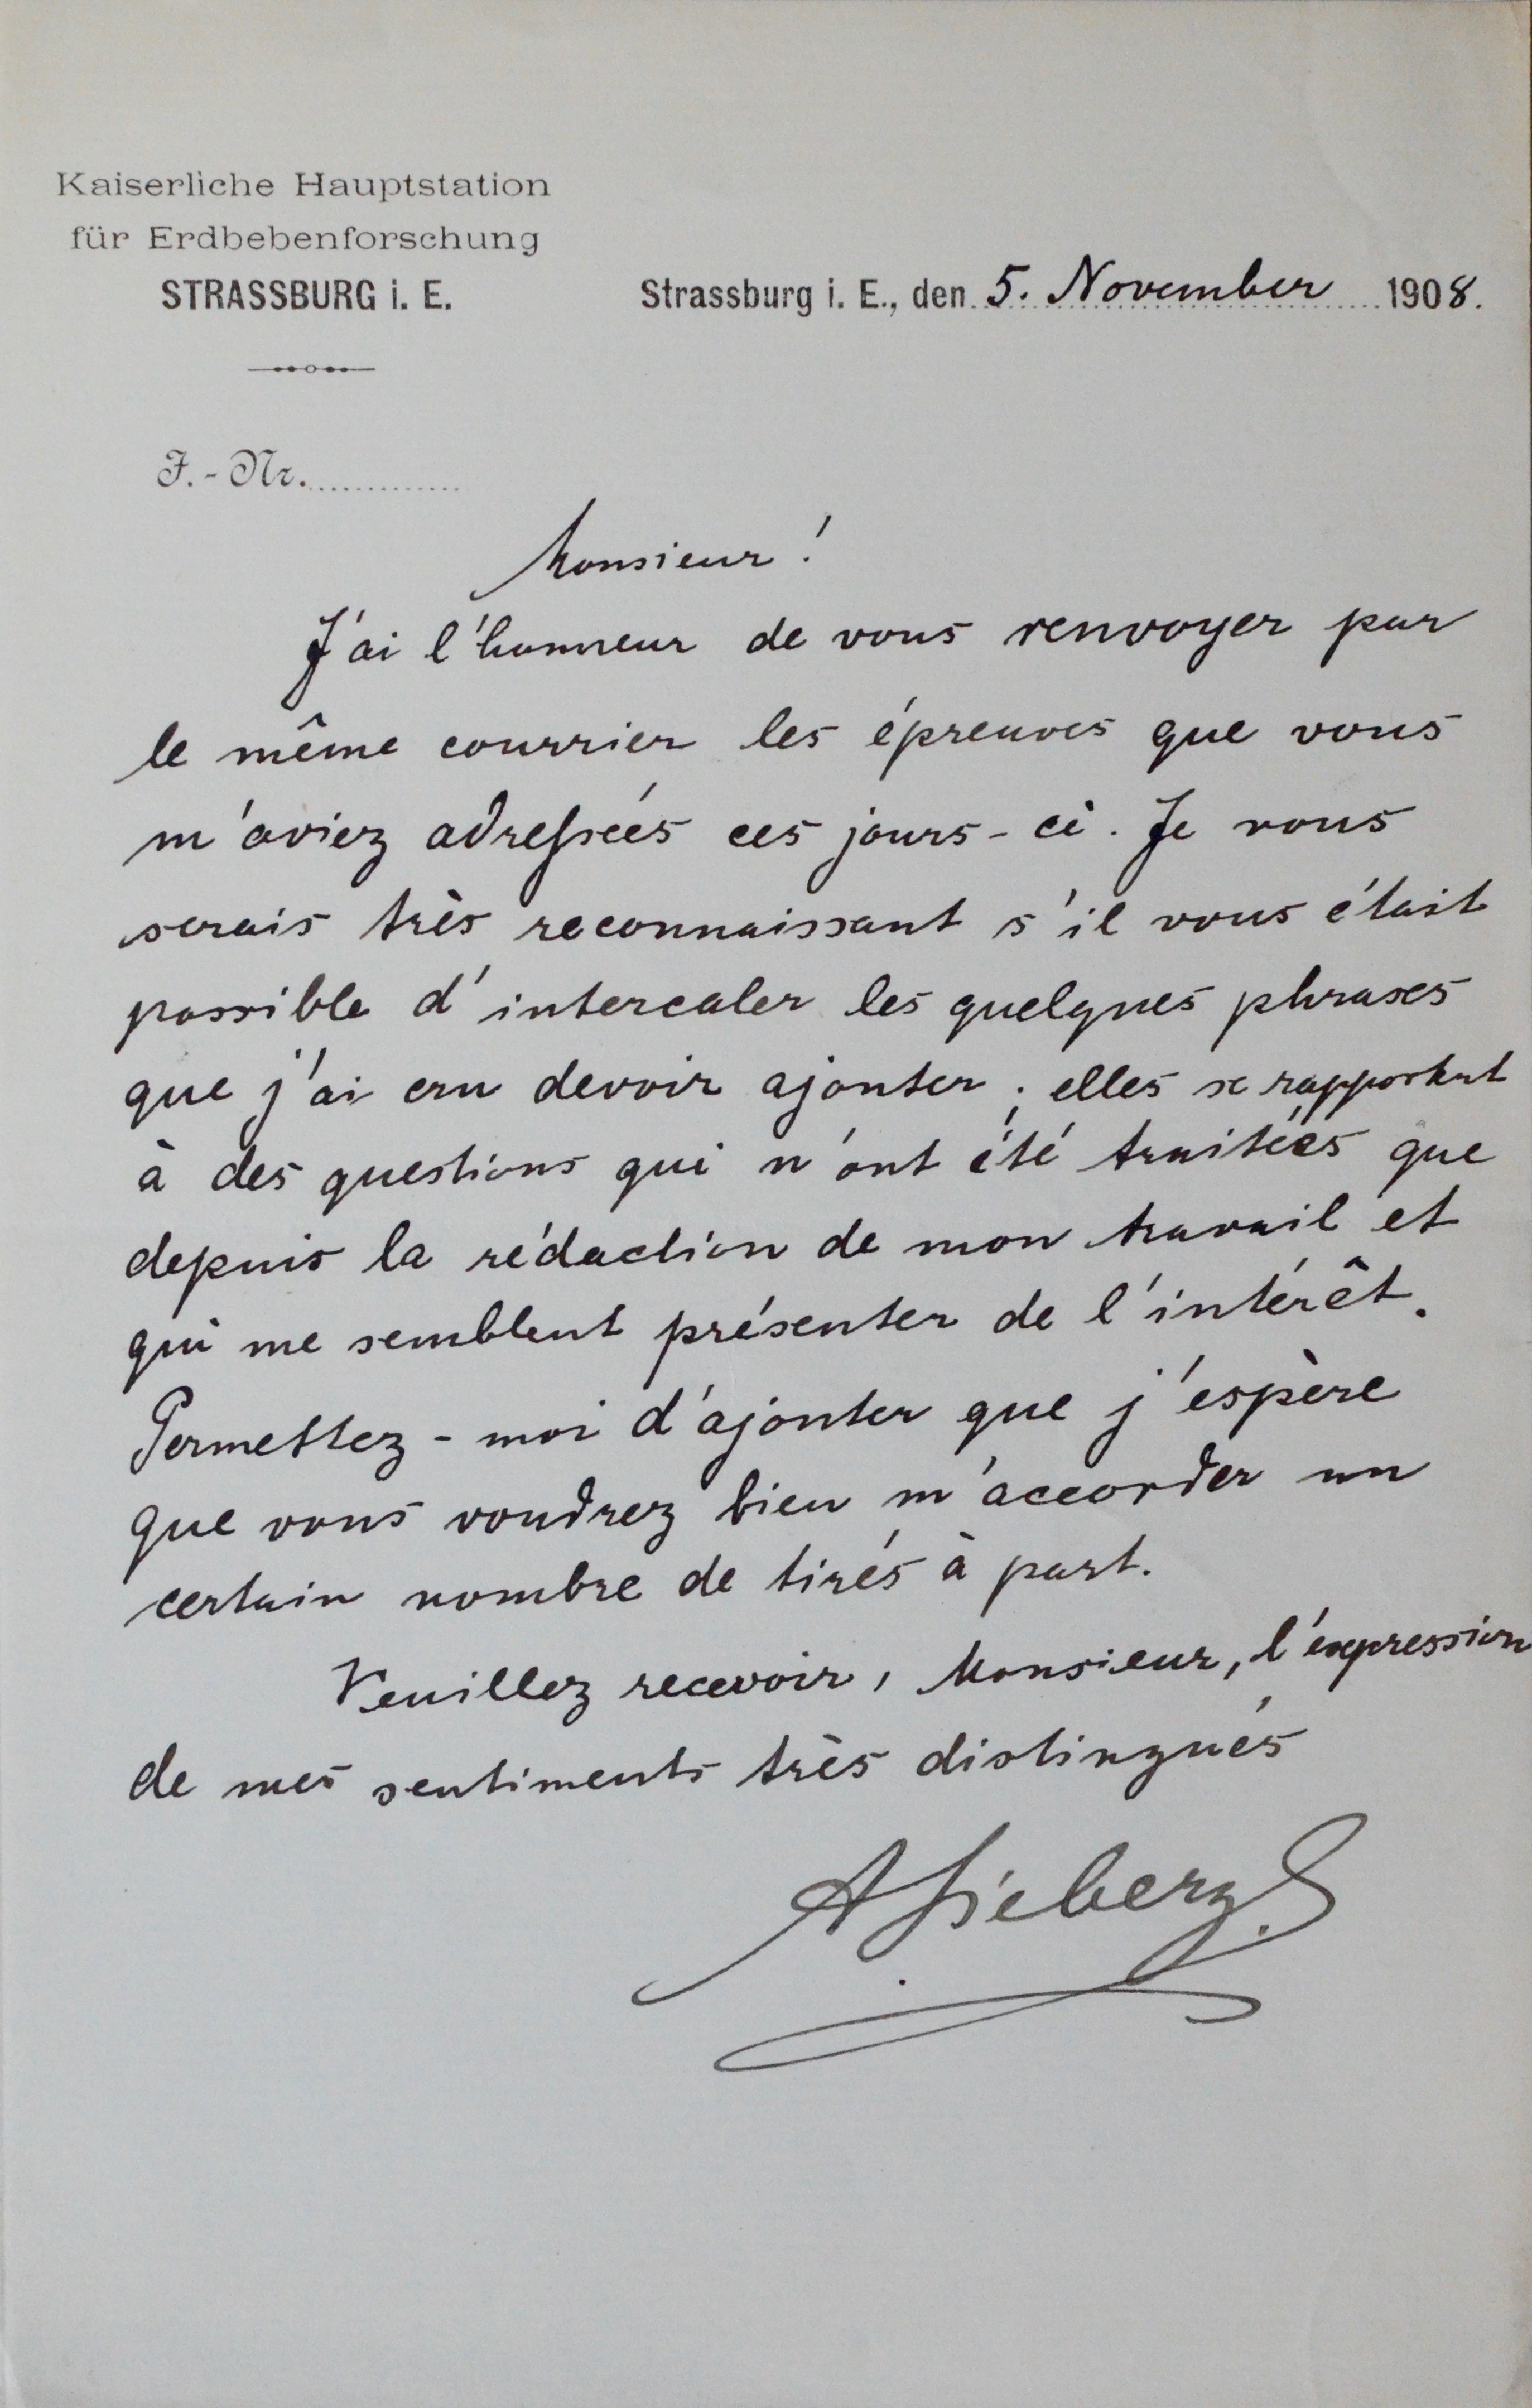 Kaiserliche Hauptstation
für Erdbebenforschung
STRASSBURG i. E.
Strassburg i. E., den 5. November 1908.
J.-Nr.
Monsieur!
J'ai l'honneur de vous renvoyer par
le même courrier les épreuves que vous
m'aviez adressées ces jours-ci. Je vous
serais très reconnaissant s'il vous était
possible d'intercaler les quelques phrases
que j'ai cru devoir ajouter; elles se rapportent
à des questions qui n'ont été traitées que
depuis la rédaction de mon travail et
qui me semblent présenter de l'intérêt.
Permettez-moi d'ajouter que j'espère
que vous voudrez bien m'accorder un
certain nombre de tirés à part.
Veuillez recevoir, Monsieur, l'expression
de mes sentiments très distingués
A Sieberg